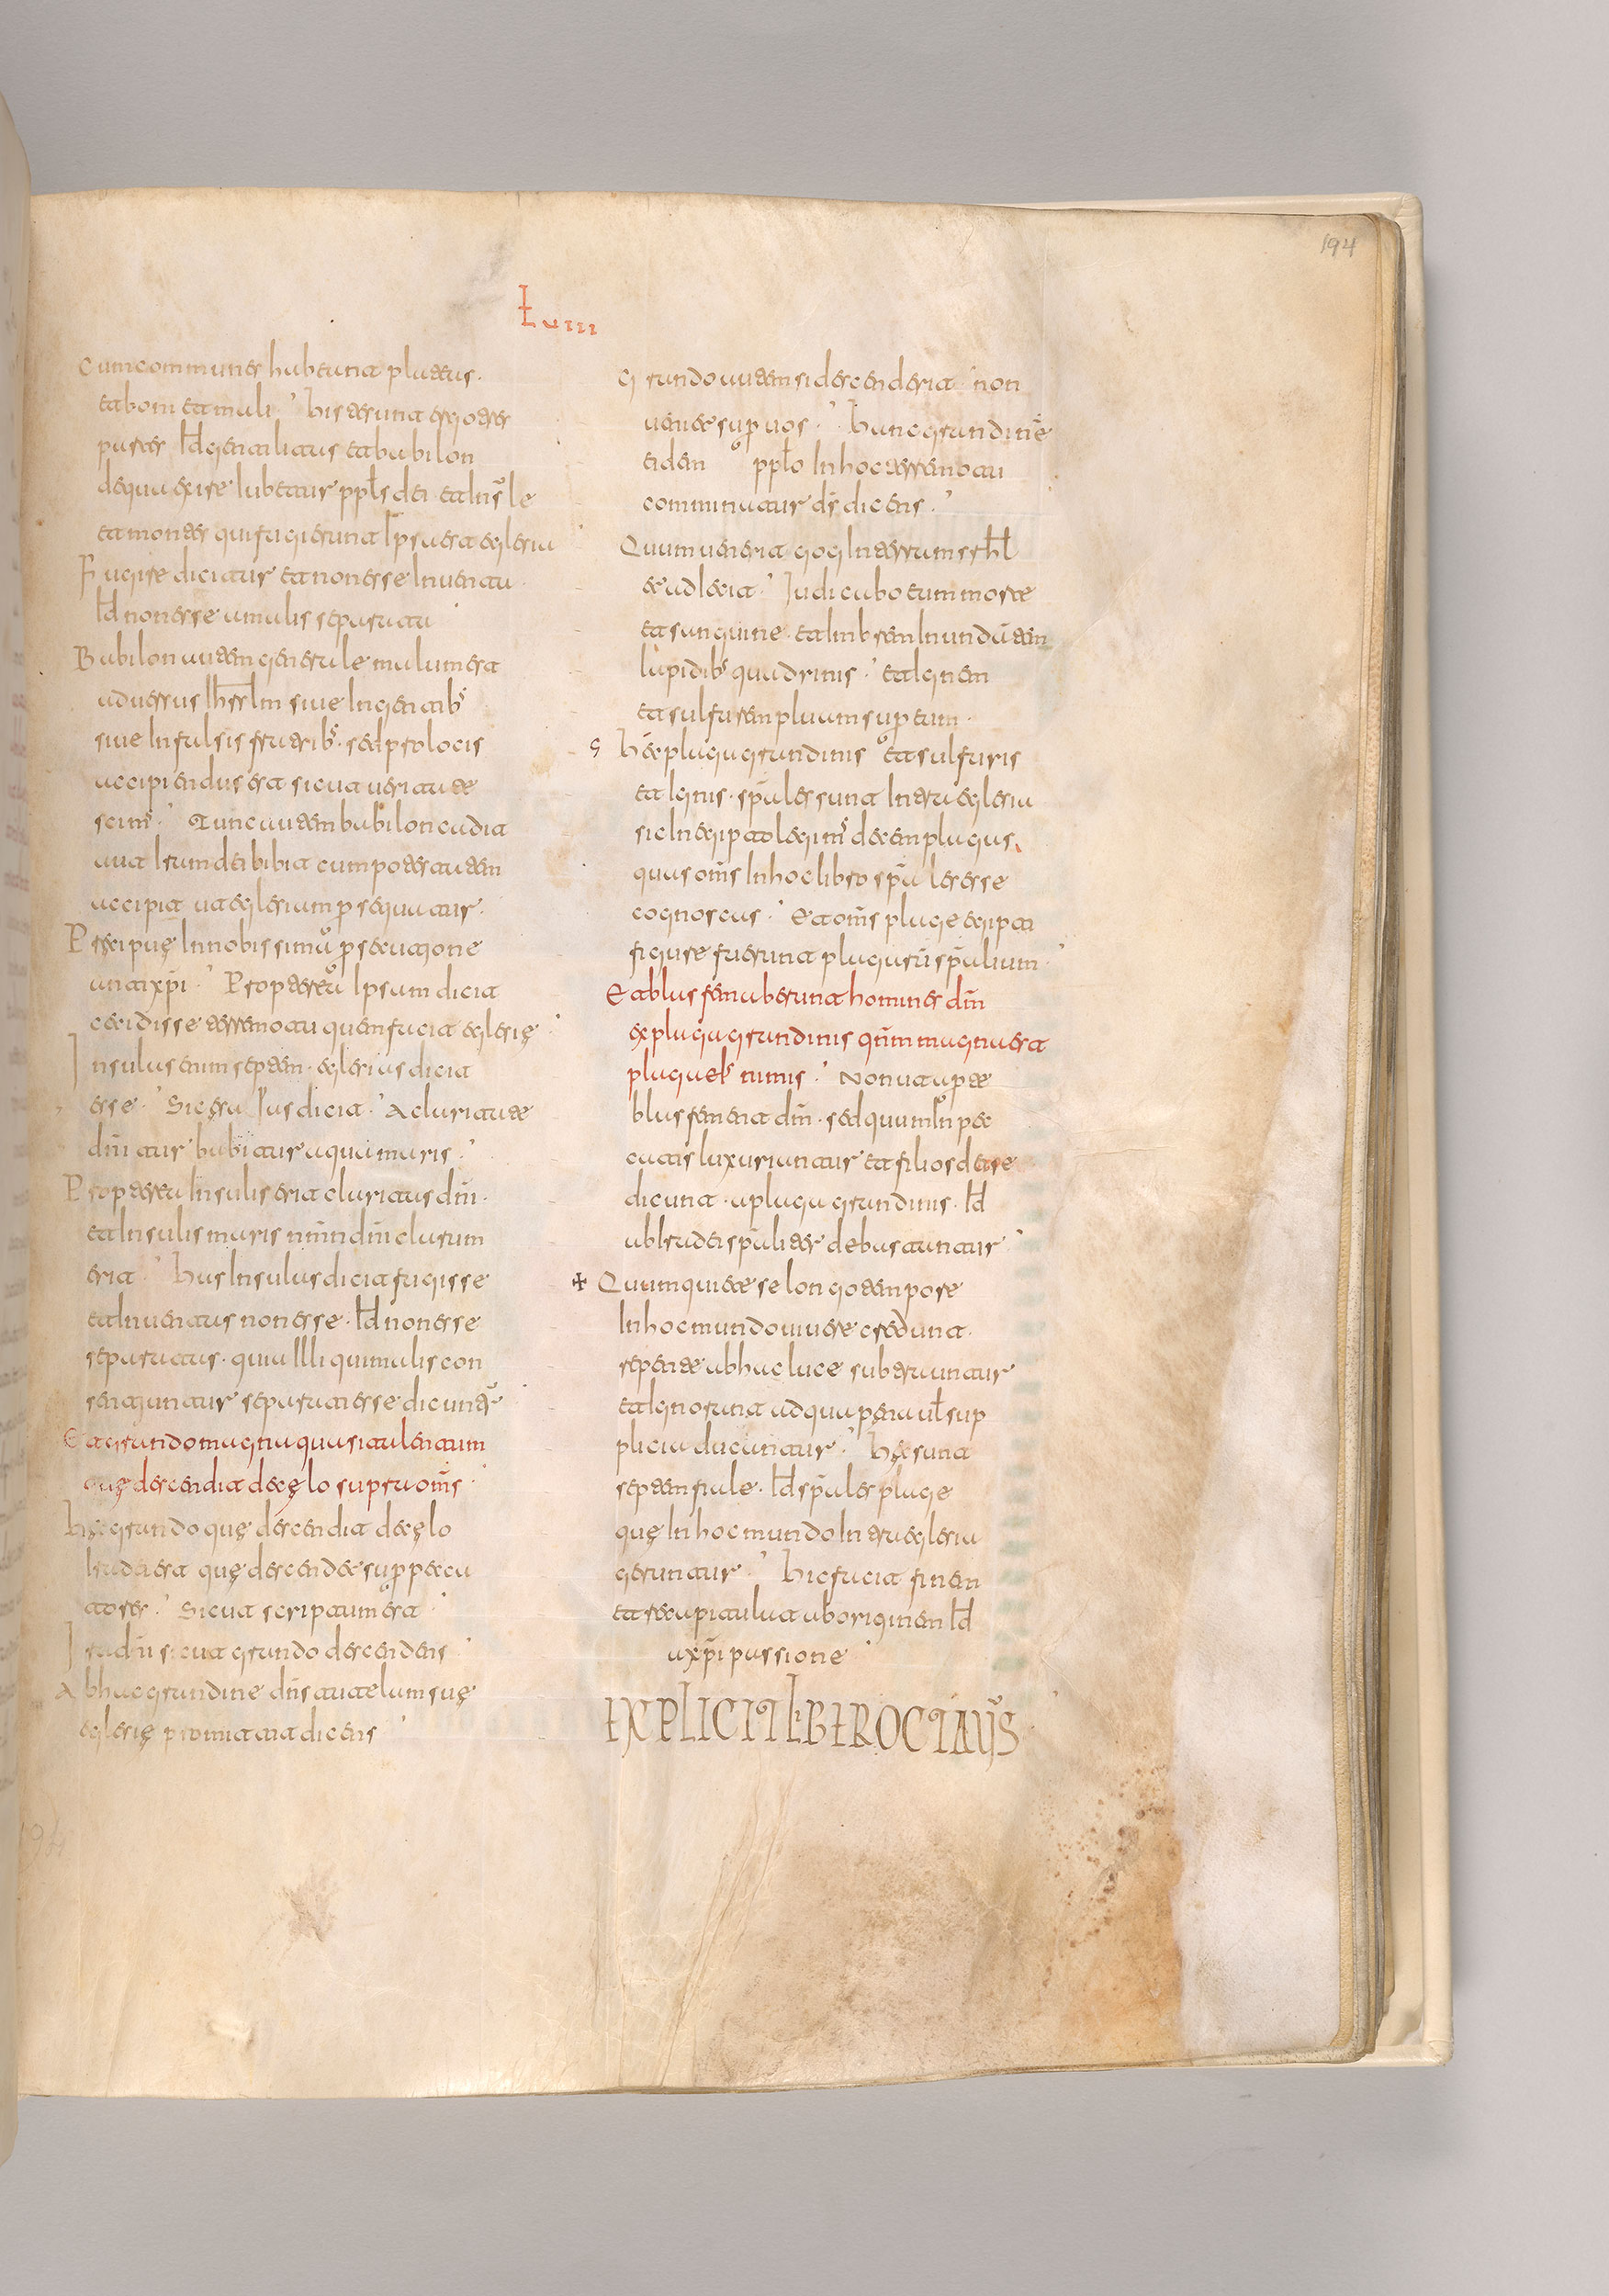 L uiii
194
Cum communes habeunt plateas.
et boni et mali .' his erunt ergo tres
partes Id gentilitas et babilon
de qua exire Iubetur ppls dei. et Insule
et montes qui fugierunt Ipsa est eglesia
Fugire dicitur et non esse Inuenta.
Id non esse a malis separata
Babilon autem generale malum est
aduersus Iherlm siue In gentibs
siue In falsis fratribs. sed pro locis
accipiendus est sicut ueritate
scims .' Tunc autem babilon cadit
aut Iram dei bibit cum potestatem
accipit ut eglesiam persequatur.
Precipuę In nobissimo persecutione
antixpi .' Propterea Ipsum dicit
cecidisse terremotu quem facit eglesię
Insulas enim septem. eglesias dicit
esse .' Sic esaias dicit .' A claritate
dni turbabitur aqua maris .'
Propterea In Insulis erit claritas dni.
et In Insulis maris nmn dni clarum
erit .' Has Insulas dicit fugisse
et Inuentas non esse. Id non esse
separatas. quia Illi qui malis con
sentiuntur separati esse dicuntr
Et grando magna quasi talentum
quę descendit de cęlo supra oms
Hęc grando quę descendit de cęlo
Ira dei est quę descendet super pecca
tores .' Sicut scriptum est
Ira dni sicut grando descendens
Ab hac grandine dns tutelam suę
eglesię promittit dicens
Grando autem si descenderit .' non
ueniet super uos .' Hanc grandinē
eidem pplo In hoc terremotu
comminatur ds dicens .'
Quum uenerit gog In terram srhl
et ad Iecit .' Iudicabo eum morte
et sanguine. et Imbrem Inundātem
lapidibs quadrinis .' et Ignem
et sulfurem pluam super eum.
Hęc plaga grandinis et sulfuris
et Ignis. spūales sunt In atra eglesia
sic In egipto legims decem plagas
quas oms In hoc libro spūales esse
cognoscas .' Et oms plage egipti
figure fuerunt plagarū spūalium .'
Et blasfemaberunt homines dm
ex plaga grandinis qnm magna est
plaga eis nimis .' Non ut aperte
blasfement dm. sed quum In pec
catis luxuriantur et filios de se
dicunt. a plaga grandinis. Id
ab Ira dei spūaliter debastantur .'
✠ Quum quiete se longo tempore
In hoc mundo uiuere credunt.
repente ab hac luce subtraantur
et Ignorunt ad qua penia uel sup
plicia ducuntur .' Hęc sunt
septem fiale. Id spūales plage
quę In hoc mundo In atra eglesia
geruntur .' Hic facit finem
et recapitulat ab origine Id
a xpi passione .'
EXPLICIT LIBER OCTAUS